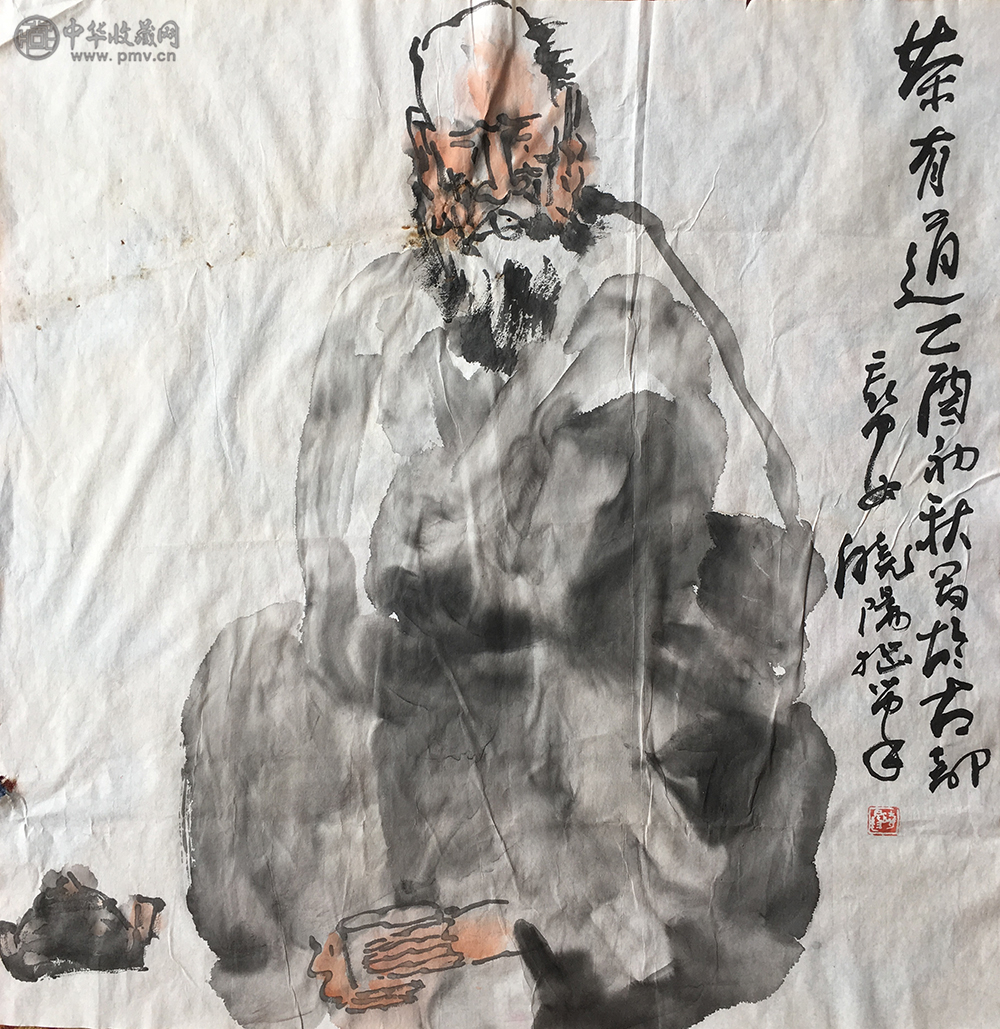 中华收藏网
www.pmv.cn
茶有道乙酉初秋写於古都
晓阳